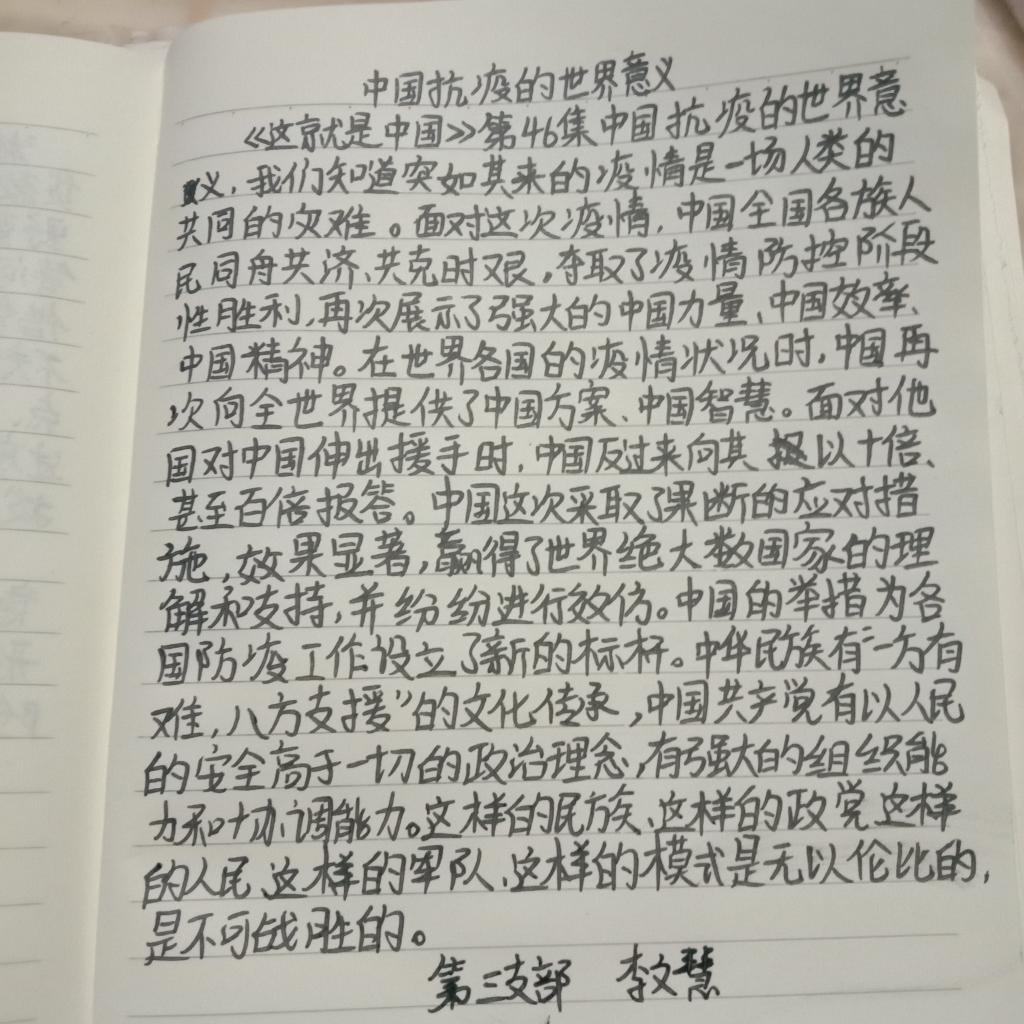 中国抗疫的世界意义
《这就是中国》第46集中国抗疫的世界意
义，我们知道突如其来的疫情是一场人类的
共同的灾难。面对这次疫情，中国全国各族人
民同舟共济、共克时艰，夺取了疫情防控阶段
性胜利，再次展示了强大的中国力量、中国效率、
中国精神。在世界各国的疫情状况时，中国再
次向全世界提供了中国方案、中国智慧。面对他
国对中国伸出援手时，中国反过来向其 以十倍、
甚至百倍报答。中国这次采取了果断的应对措
施，效果显著，赢得了世界绝大数国家的理
解和支持，并纷纷进行效仿。中国的举措为各
国防疫工作设立了新的标杆。中华民族有“一方有
难，八方支援”的文化传承，中国共产党有以人民
的安全高于一切的政治理念，有强大的组织能
力和协调能力。这样的民族、这样的政党、这样
的人民、这样的军队、这样的模式是无以伦比的，
是不可战胜的。
第三支部 李文慧